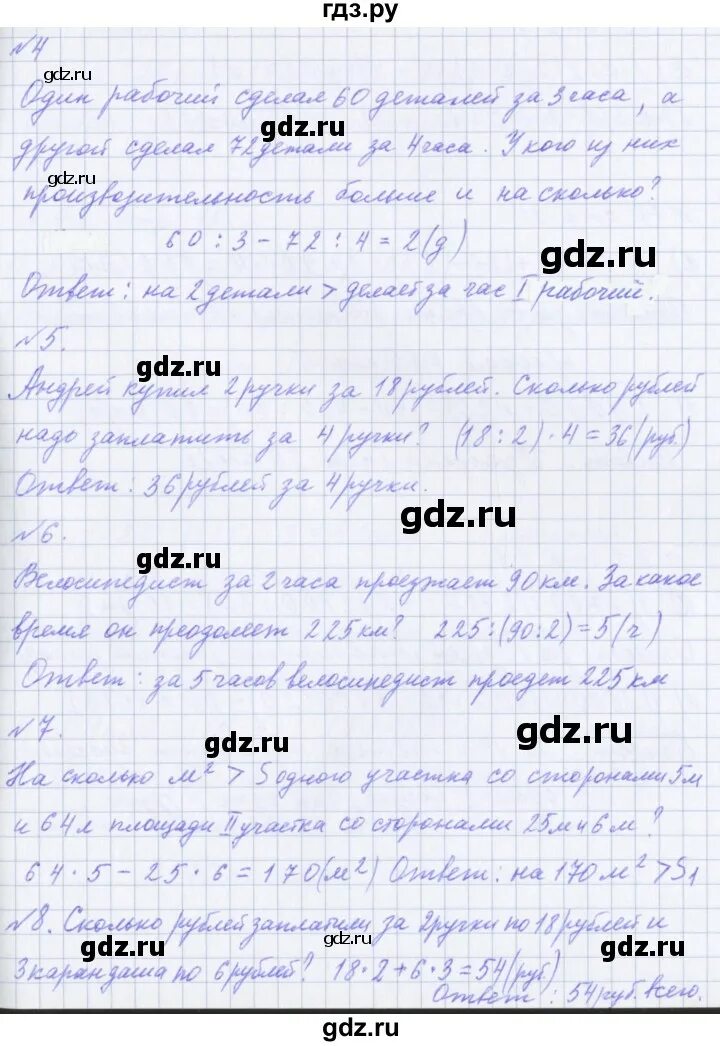 гдз.ру
№4
gdz.ru
Один рабочий сделал 60 деталей за 3 часа, а
gdz.ru
другой сделал 72 детали за 4 часа. У кого из них
gdz.ru
производительность больше и на сколько?
60 : 3 - 72 : 4 = 2 (д)
gdz.ru
Ответ: на 2 детали > делает за час I рабочий.
№5.
gdz.ru
Андрей купил 2 ручки за 18 рублей. Сколько рублей
надо заплатить за 4 ручки? (18 : 2) · 4 = 36 (руб)
Ответ: 36 рублей за 4 ручки.
gdz.ru
№6.
gdz.ru
Велосипедист за 2 часа проезжает 90 км. За какое
время он преодолеет 225 км? 225 : (90 : 2) = 5 (ч)
Ответ: за 5 часов велосипедист проедет 225 км
№7.
gdz.ru
gdz.ru
На сколько м² > S одного участка со сторонами 5 м
и 64 м площади II участка со сторонами 25 м и 6 м?
64 · 5 - 25 · 6 = 170 (м²) Ответ: на 170 м² > S₁
№8. Сколько рублей заплатили за 2 ручки по 18 рублей и
gdz.ru
gdz.ru
gdz.ru
3 карандаша по 6 рублей? 18 · 2 + 6 · 3 = 54 (руб)
Ответ: 54 руб. всего.
gdz.ru